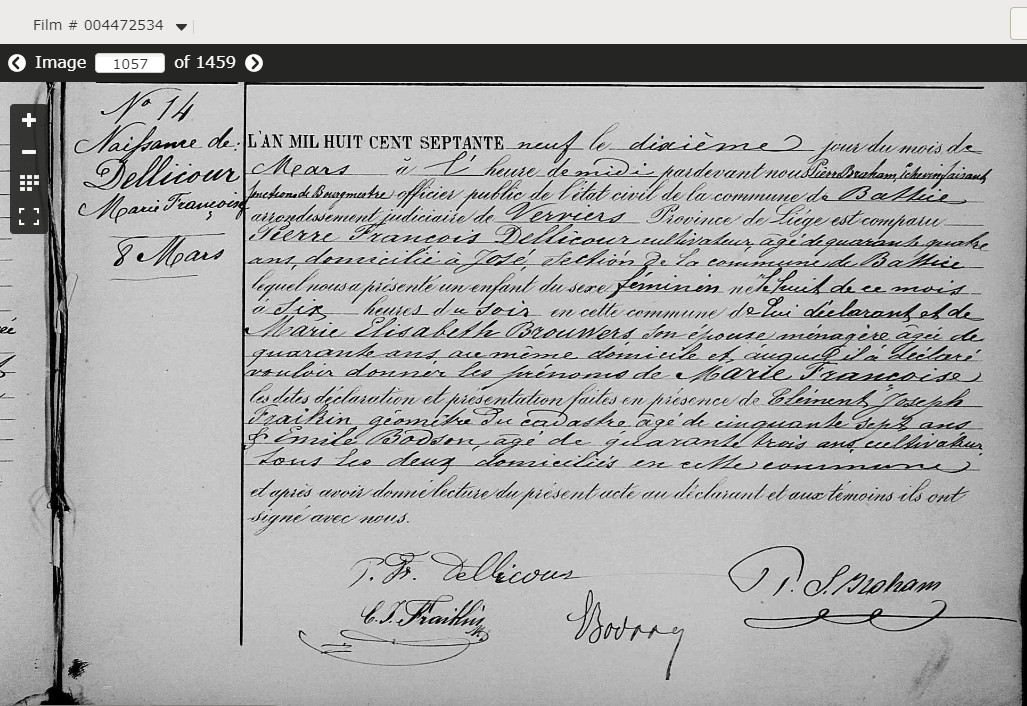 Film # 004472534
Image 1057 of 1459
No 14
Naissance de:
Dellicour
Marie Francoise
8 Mars
L'AN MIL HUIT CENT SEPTANTE neuf le dixième jour du mois de
Mars à l' heure de midi pardevant nous Pierre Braham, Echevin faisant
fonctions de Bourgmestre officier public de l'état civil de la commune de Battice
arrondissement judiciaire de Verviers Province de Liège est comparu
Pierre François Dellicour cultivateur, âgé de quarante quatre
ans, domicilié à José, section de la commune de Battice
lequel nous a présenté un enfant du sexe féminin né le huit de ce mois
à six heures du soir en cette commune de lui déclarant et de
Marie Elisabeth Brouwers son épouse ménagère âgée de
quarante ans, au même domicile et auquel il a déclaré
vouloir donner les prénoms de Marie Francoise
les dites déclaration et présentation faites en présence de Clément Joseph
Fraikin géomètre du cadastre âgé de cinquante sept ans
& Emile Bodson, âgé de quarante trois ans, cultivateur
tous les deux domiciliés en cette commune
et après avoir donné lecture du présent acte au déclarant et aux témoins ils ont
signé avec nous.
P. Fr. Dellicour
C. J. Fraikin